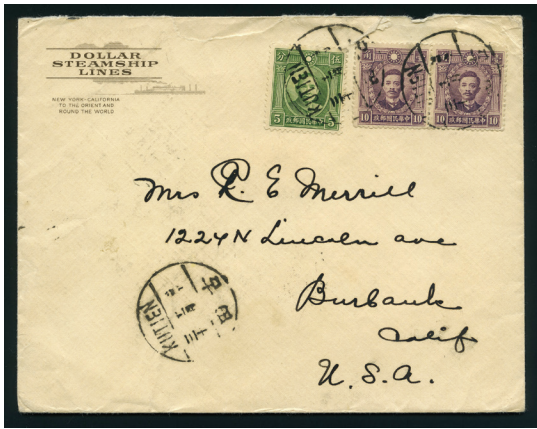 DOLLAR
STEAMSHIP
LINES
NEW YORK-CALIFORNIA
TO THE ORIENT AND
ROUND THE WORLD
5 5
10 10
10 10
中華民國郵政
中華民國郵政
中華民國郵政
KUTIEN
Mrs R. E Merrill
1224 N Lincoln ave
Burbank
Calif
U.S.A.
KUTIEN
古田